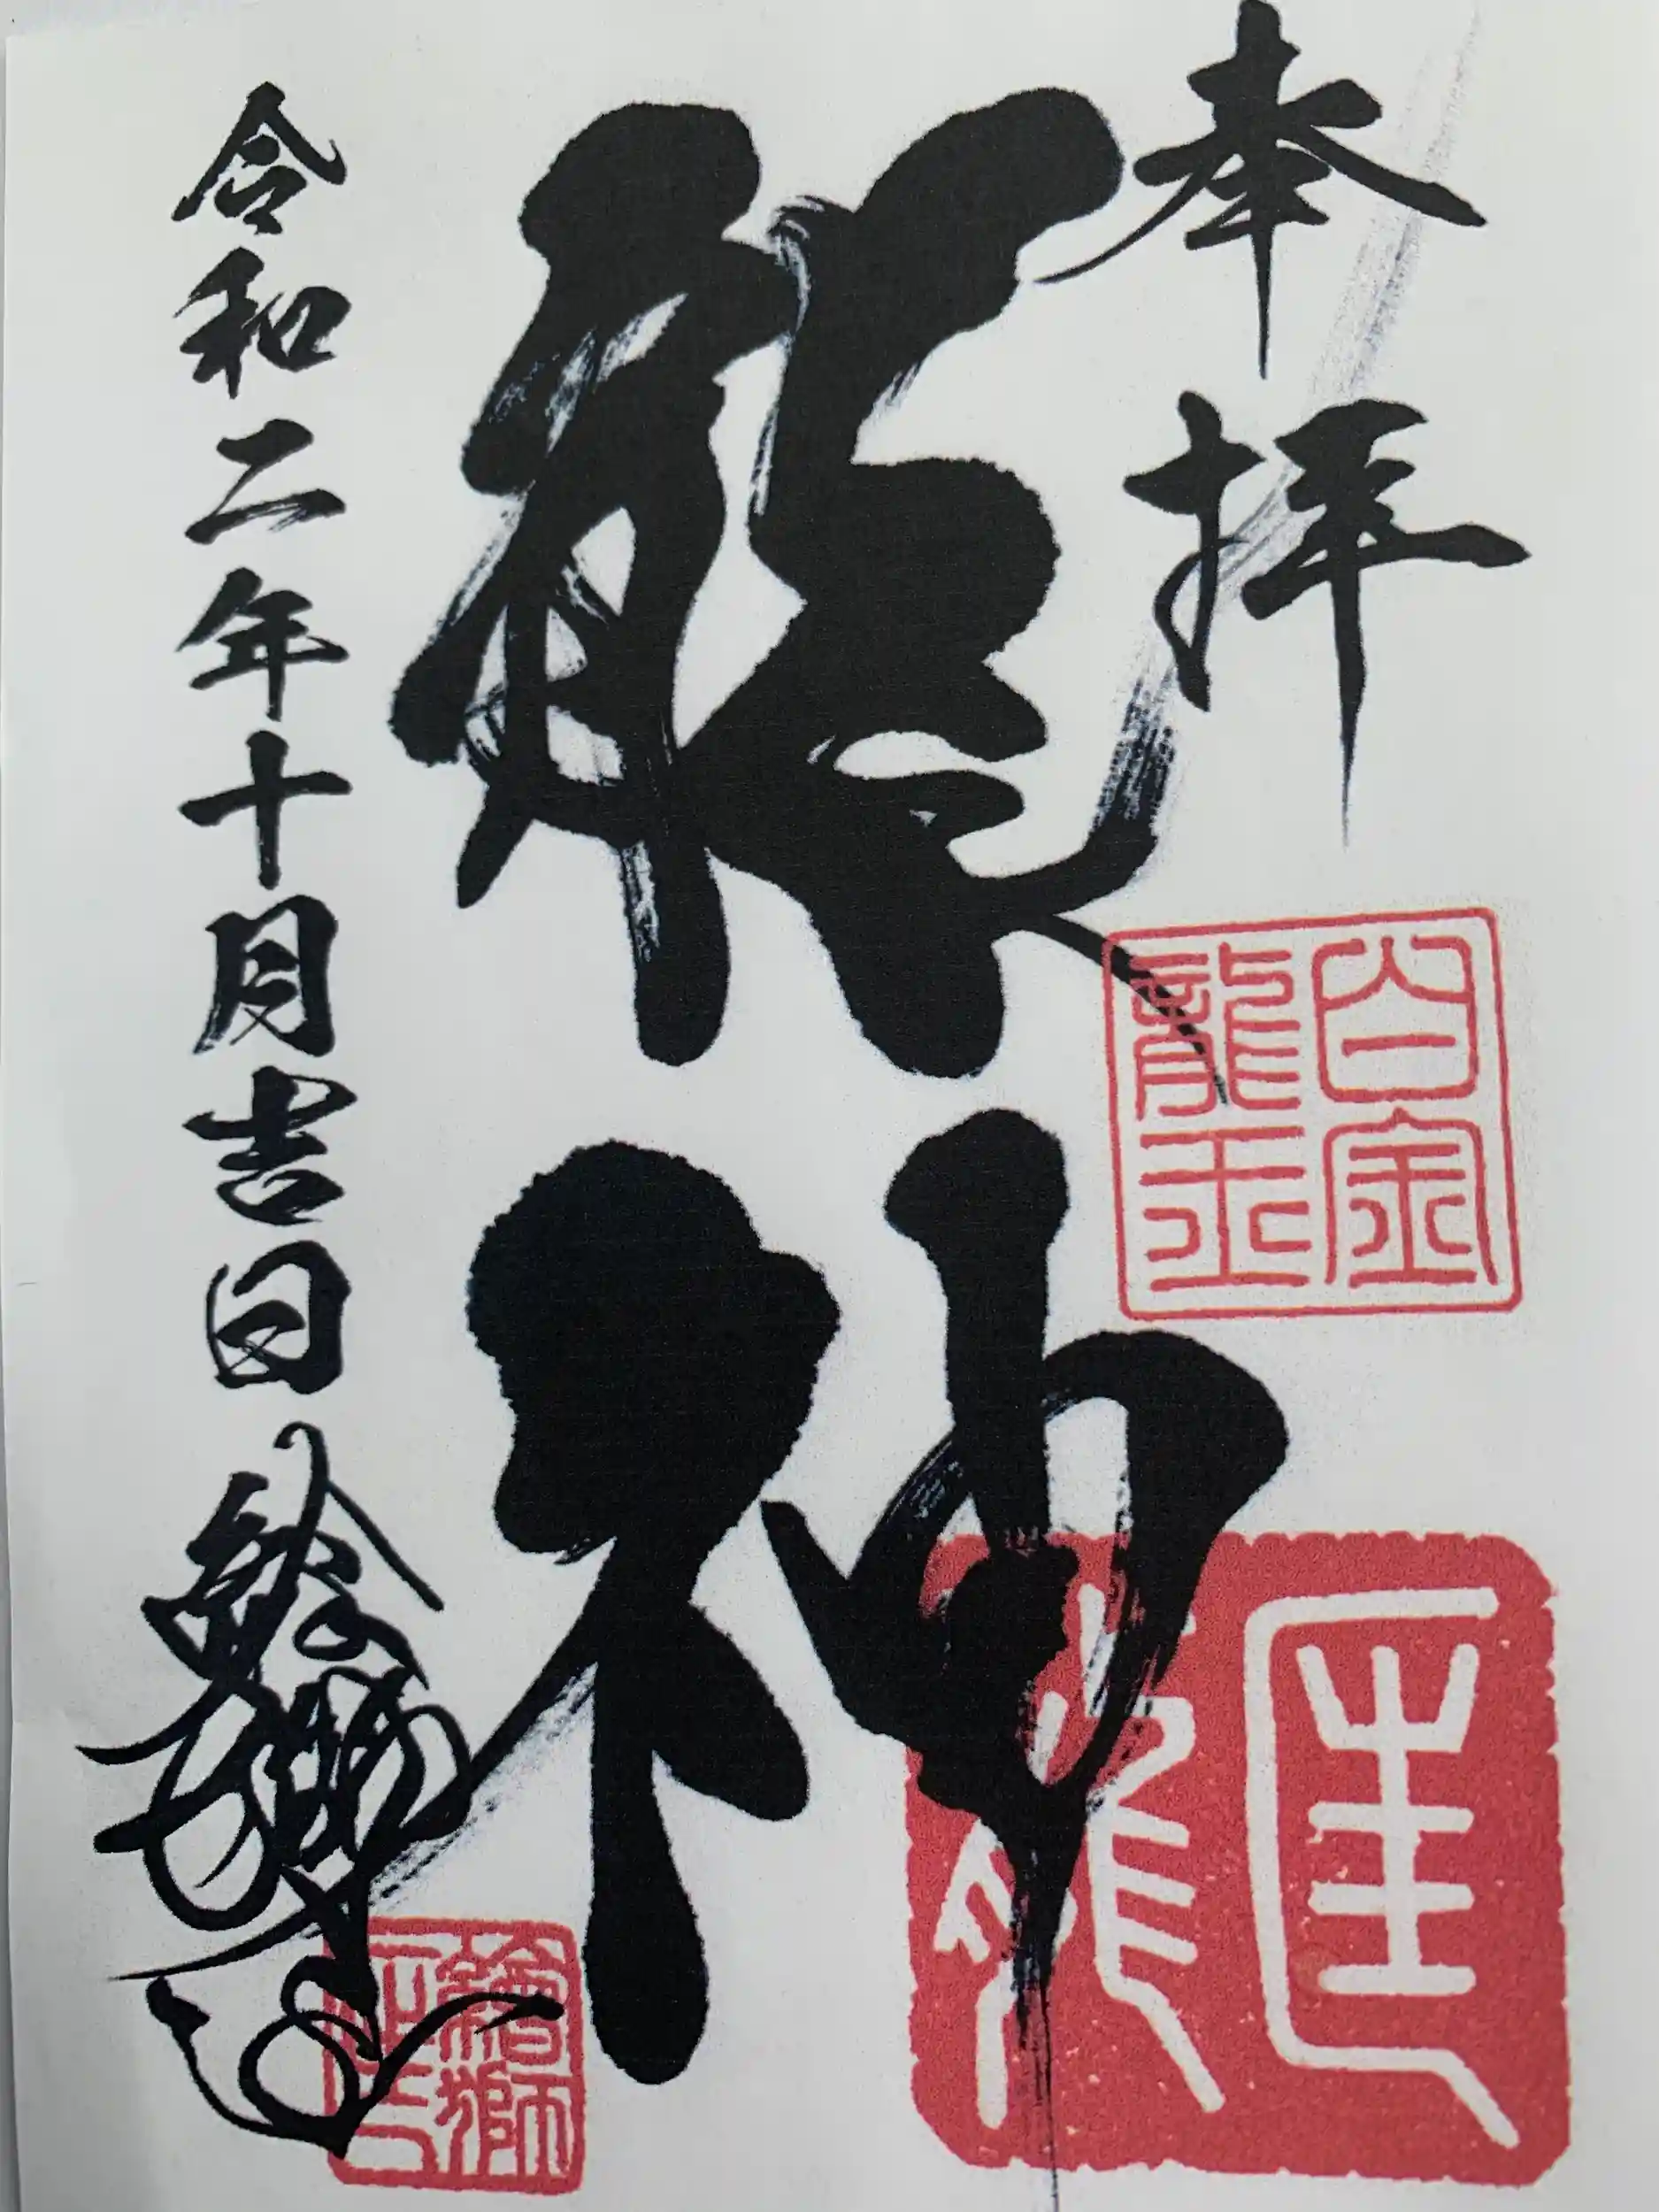 奉拝
龍神
白金
龍王
令和二年十月吉日